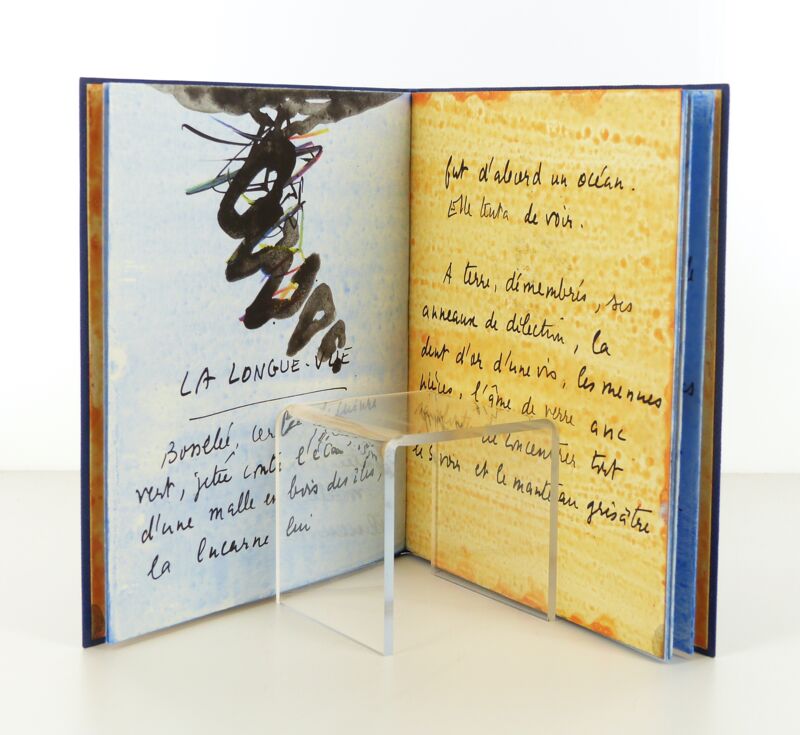 LA LONGUE-VUE
Bosselé, cerclé de cuivre
vert, jetée contre l'écoin
d'une malle en bois des îles,
la lucarne lui
fut d'abord un océan.
Elle tenta de voir.
A terre, démembrés, ses
anneaux de dilection, la
dent d'or d'une vis, les menues
pièces, l'âme de verre
de concentrer tout
et le manteau grisâtre